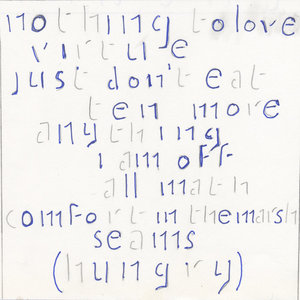 nothing to love
virtue
just don't eat
ten more
anything
i am off
all math
comfort in the marsh
seams
(hungry)